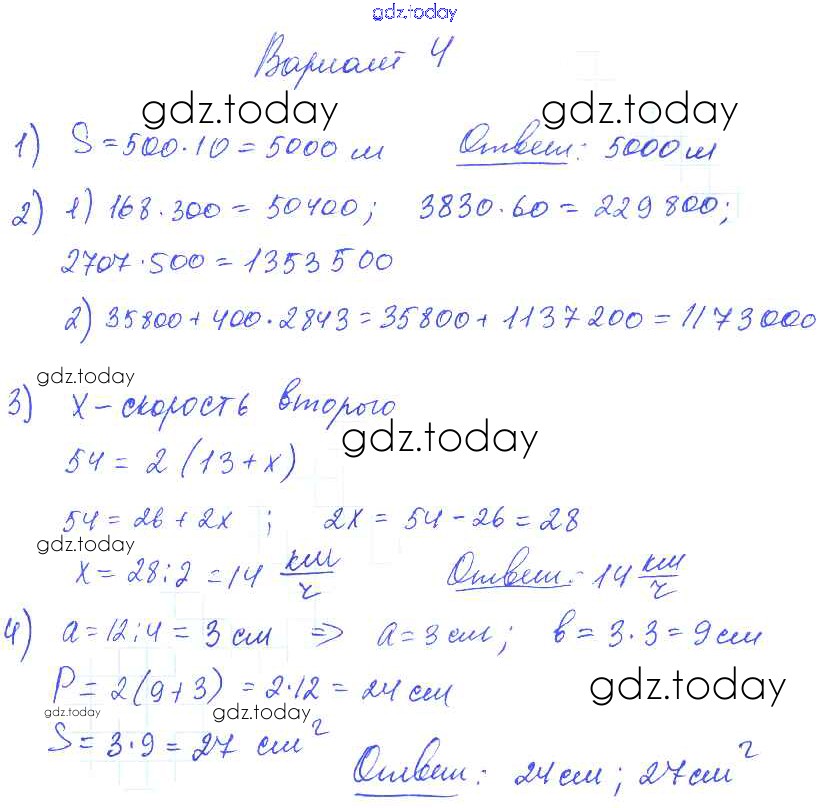 gdz.today
Вариант 4
gdz.today gdz.today
1) S = 500·10 = 5000 м Ответ: 5000 м
2) 1) 168·300 = 50400; 3830·60 = 229800;
2707·500 = 1353500
2) 35800 + 400·2843 = 35800 + 1137200 = 1173000
gdz.today
3) x – скорость второго
gdz.today
54 = 2 (13 + x)
54 = 26 + 2x ; 2x = 54 – 26 = 28
gdz.today
x = 28:2 = 14 км/ч Ответ: 14 км/ч
4) a = 12:4 = 3 см ⇒ a = 3 см; в = 3·3 = 9 см
P = 2(9+3) = 2·12 = 24 см
gdz.today
gdz.today gdz.today
S = 3·9 = 27 см²
Ответ: 24 см; 27 см²